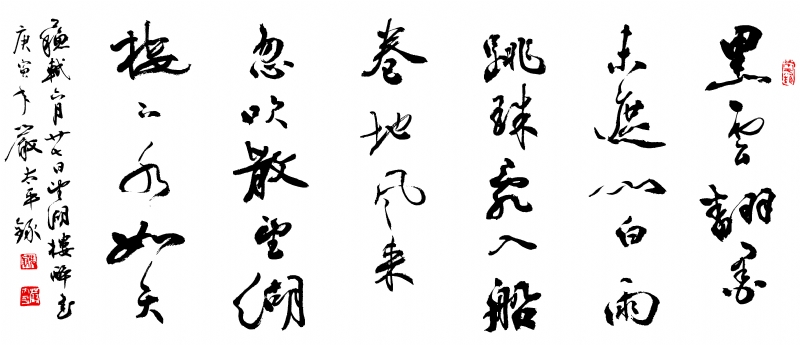 黑雲翻墨
未遮山白雨
跳珠亂入船
卷地風来
忽吹散望湖
樓下水如天
蘇軾六月廿七日望湖樓醉書
庚寅年嚴太平錄